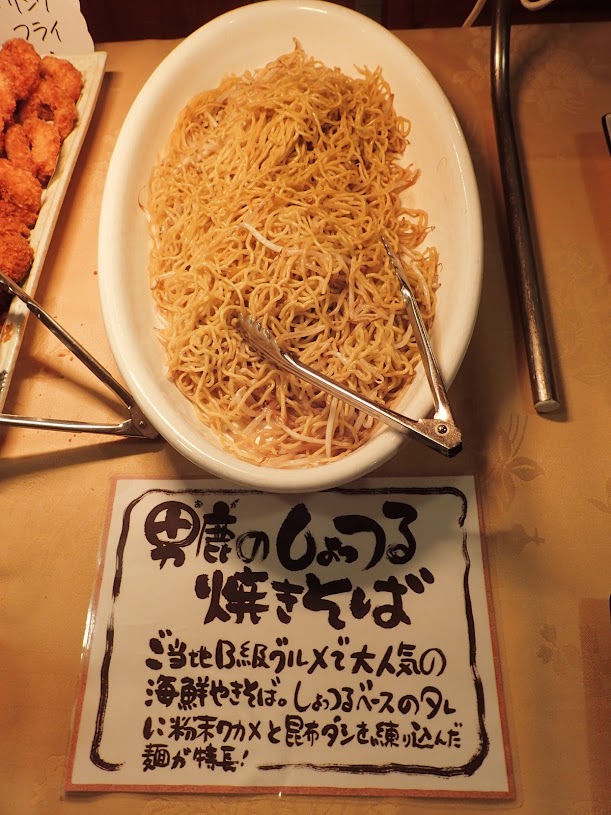 フライ
男鹿のしょっつる
焼きそば
ご当地B級グルメで大人気の
海鮮やきそば。しょっつるベースのタレ
に粉末ワカメと昆布ダシを練り込んだ
麺が特長!